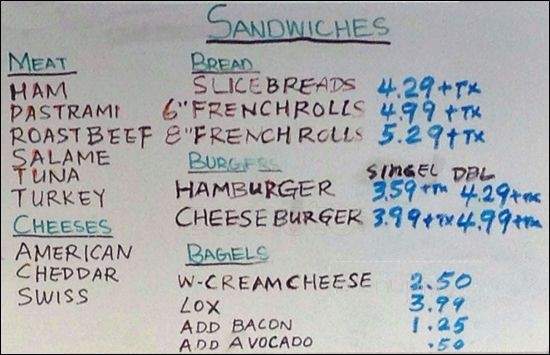 SANDWICHES
MEAT
HAM
PASTRAMI
ROAST BEEF
SALAME
TUNA
TURKEY
CHEESES
AMERICAN
CHEDDAR
SWISS
BREAD
SLICE BREADS 4.29+TX
6" FRENCH ROLLS 4.99+TX
8" FRENCH ROLLS 5.29+TX
BURGERS SINGEL DBL
HAMBURGER 3.59+TX 4.29+TX
CHEESE BURGER 3.99+TX 4.99+TX
BAGELS
W-CREAM CHEESE 2.50
LOX 3.99
ADD BACON 1.25
ADD AVOCADO .50